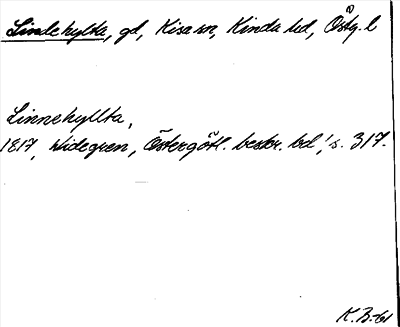 Lindehylta, gd, Kisa sn, Kinda hd, Östg. l
Linnehyllta,
1817, Widegren, Östergötl. beskr. bd 1, s. 317.
K.B-61